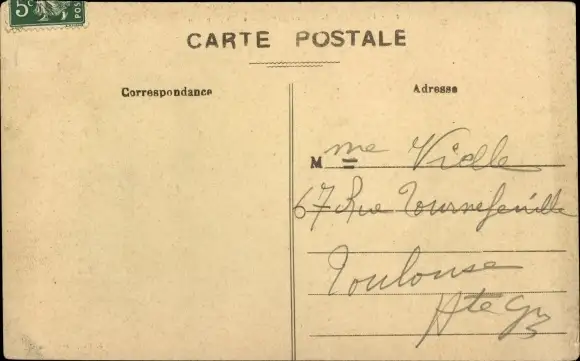 5c
POS
CARTE POSTALE
Correspondance
Adresse
Mme Vialle
67 Rue Tournefeuille
Toulouse
Hte Gne